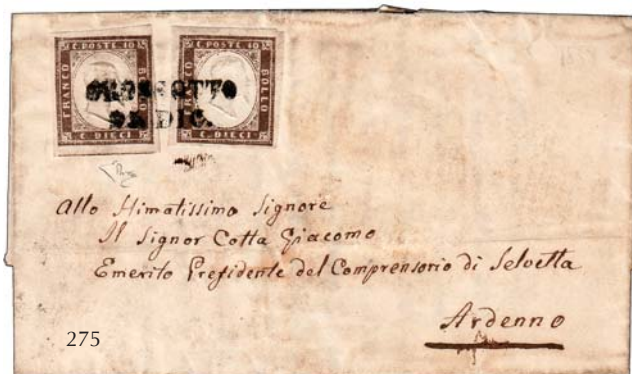 C. POSTE 10 C. POSTE 10
FRANCO BOLLO FRANCO BOLLO
C. DIECI C. DIECI
GROSOTTO
DIC.
Allo Stimatissimo Signore
Il Signor Cotta Giacomo
Emerito Presidente del Comprensorio di Selvetta
Ardenno
275